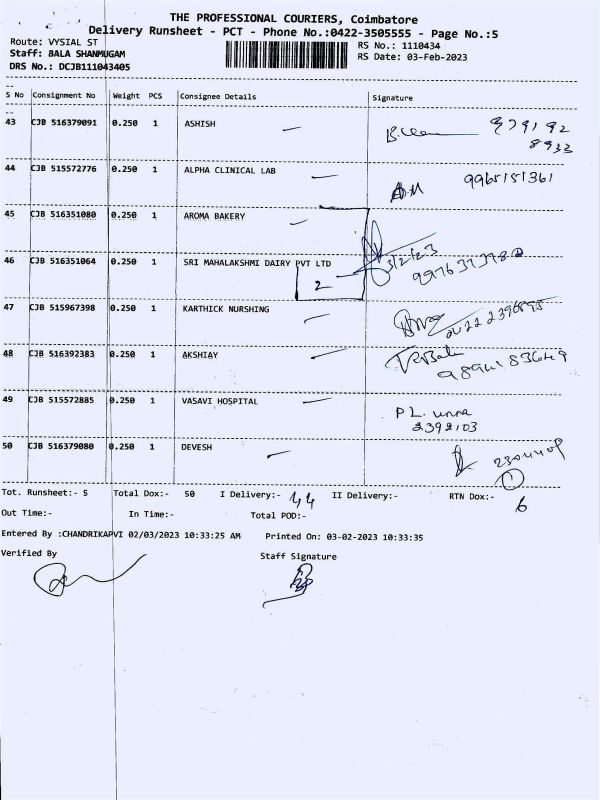 THE PROFESSIONAL COURIERS, Coimbatore
Delivery Runsheet - PCT - Phone No.:0422-3505555 - Page No.:5
Route: VYSIAL ST RS No.: 1110434
Staff: BALA SHANMUGAM RS Date: 03-Feb-2023
DRS No.: DCJB111043405
S No Consignment No Weight PCS Consignee Details Signature
43 CJB 516379091 0.250 1 ASHISH
44 CJB 515572776 0.250 1 ALPHA CLINICAL LAB 9965151361
45 CJB 516351080 0.250 1 AROMA BAKERY
46 CJB 516351064 0.250 1 SRI MAHALAKSHMI DAIRY PVT LTD 3/2/23
2
47 CJB 515967398 0.250 1 KARTHICK NURSHING
48 CJB 516392383 0.250 1 AKSHIAY
49 CJB 515572885 0.250 1 VASAVI HOSPITAL
2392103
50 CJB 516379080 0.250 1 DEVESH
1
Tot. Runsheet:- 5 Total Dox:- 50 I Delivery:- 44 II Delivery:- RTN Dox:- 6
Out Time:- In Time:- Total POD:-
Entered By :CHANDRIKAPVI 02/03/2023 10:33:25 AM Printed On: 03-02-2023 10:33:35
Verified By Staff Signature